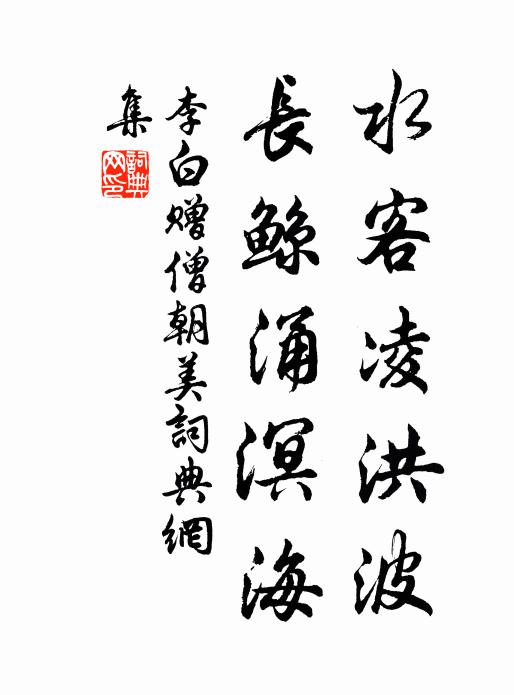 水客凌洪波
長鯨涌溟海
李白贈僧朝美詞典網
集
詞典
网印